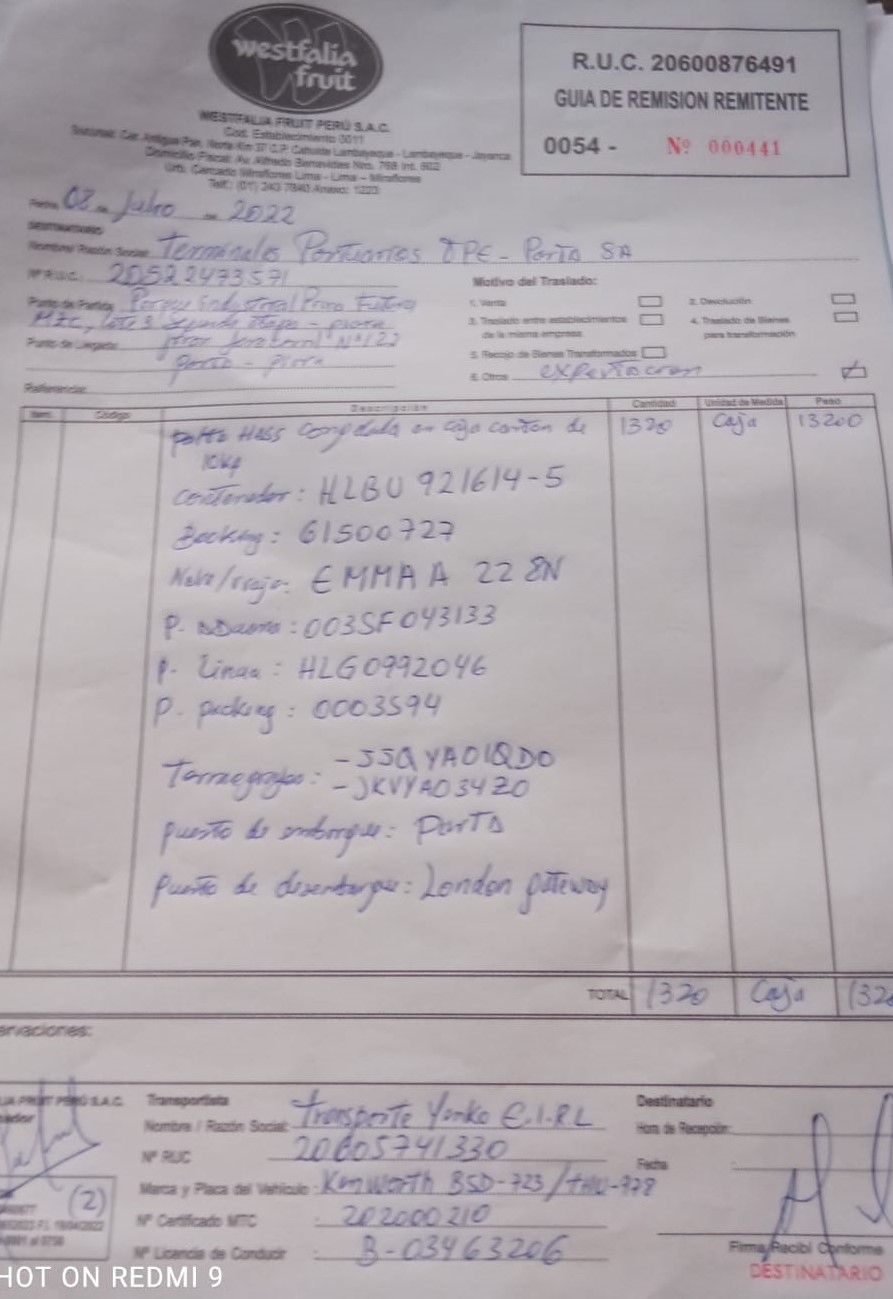 westfalia
fruit
WESTFALIA FRUIT PERÚ S.A.C.
Cod. Establecimiento 0011
Sucursal: Car. Antigua Pan. Norte Km 37 C.P. Lambayeque - Lambayeque - Jayanca
Domicilio Fiscal: Av. Alfredo Benavides Nro. 768 Int. 902
Urb. Cercado Miraflores Lima - Lima - Miraflores
Telf.: (01) 243 7640 Anexo: 1223
R.U.C. 20600876491
GUIA DE REMISION REMITENTE
0054 - Nº 000441
Fecha 08 de Julio de 2022
DESTINATARIO
Nombre/Razón Social: Terminales Portuarios - Paita SA
Nº RUC: 20522473571
Motivo del Traslado:
Punto de Partida Industrial
1. Venta
2. Devolución
MZC, Lote 3 Segunda Etapa - piura
3. Traslado entre establecimientos
de la misma empresa
4. Traslado de Bienes
para transformación
Punto de Llegada: Nº 122
5. Recojo de Bienes Transformados
- piura
6. Otros exportacion
Referencias:
Item Código Descripción Cantidad Unidad de Medida Peso
palta HASS en caja carton de 1320 Caja 13200
10kg
contenedor: HLBU 921614-5
Booking: 61500727
Nave/viaje: EMMA A 228N
P. Aduana: 003SF043133
P. Linea: HLG0992046
P. packing: 0003594
Termografos: - JKVYA034Z0
puerto de embarque: Paita
Puerto de desembarque: London gateway
TOTAL 1320 Caja
ervaciones:
IA FRUIT PERÚ S.A.C.
Transportista
Destinatario
Nombre / Razón Social: Transporte Yunko E.I.R.L
Hora de Recepción:
Nº RUC 20605741330
Fecha
Marca y Placa del Vehículo: Kenworth BSD-723/
(2)
Nº Certificado MTC : 202000210
Nº Licencia de Conducir : B-03463206
Firma Recibí Conforme
DESTINATARIO
HOT ON REDMI 9